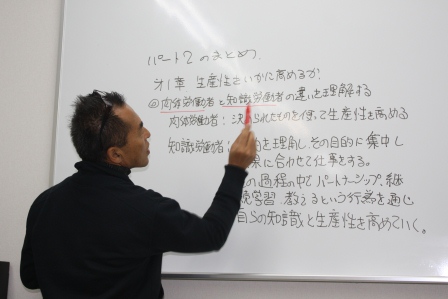 パート2のまとめ
オ1章 生産性をいかに高めるか?
◎肉体労働者と知識労働者の違いを理解する
肉体労働者:決められたものを使って生産性を高める
知識労働者: を理解し、その目的に集中し
果に合わせて仕事をする。
の過程の中でパートナーシップ、継
続学習、教えるという行為を通じ
自Sの知識と生産性を高めていく。